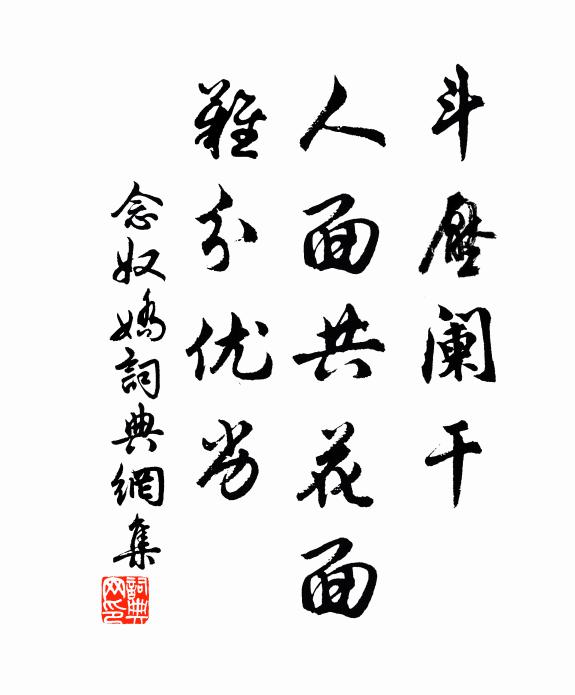 斗壓阑干
人面共花面
難分优劣
念奴嬌詞典網集
詞典网印